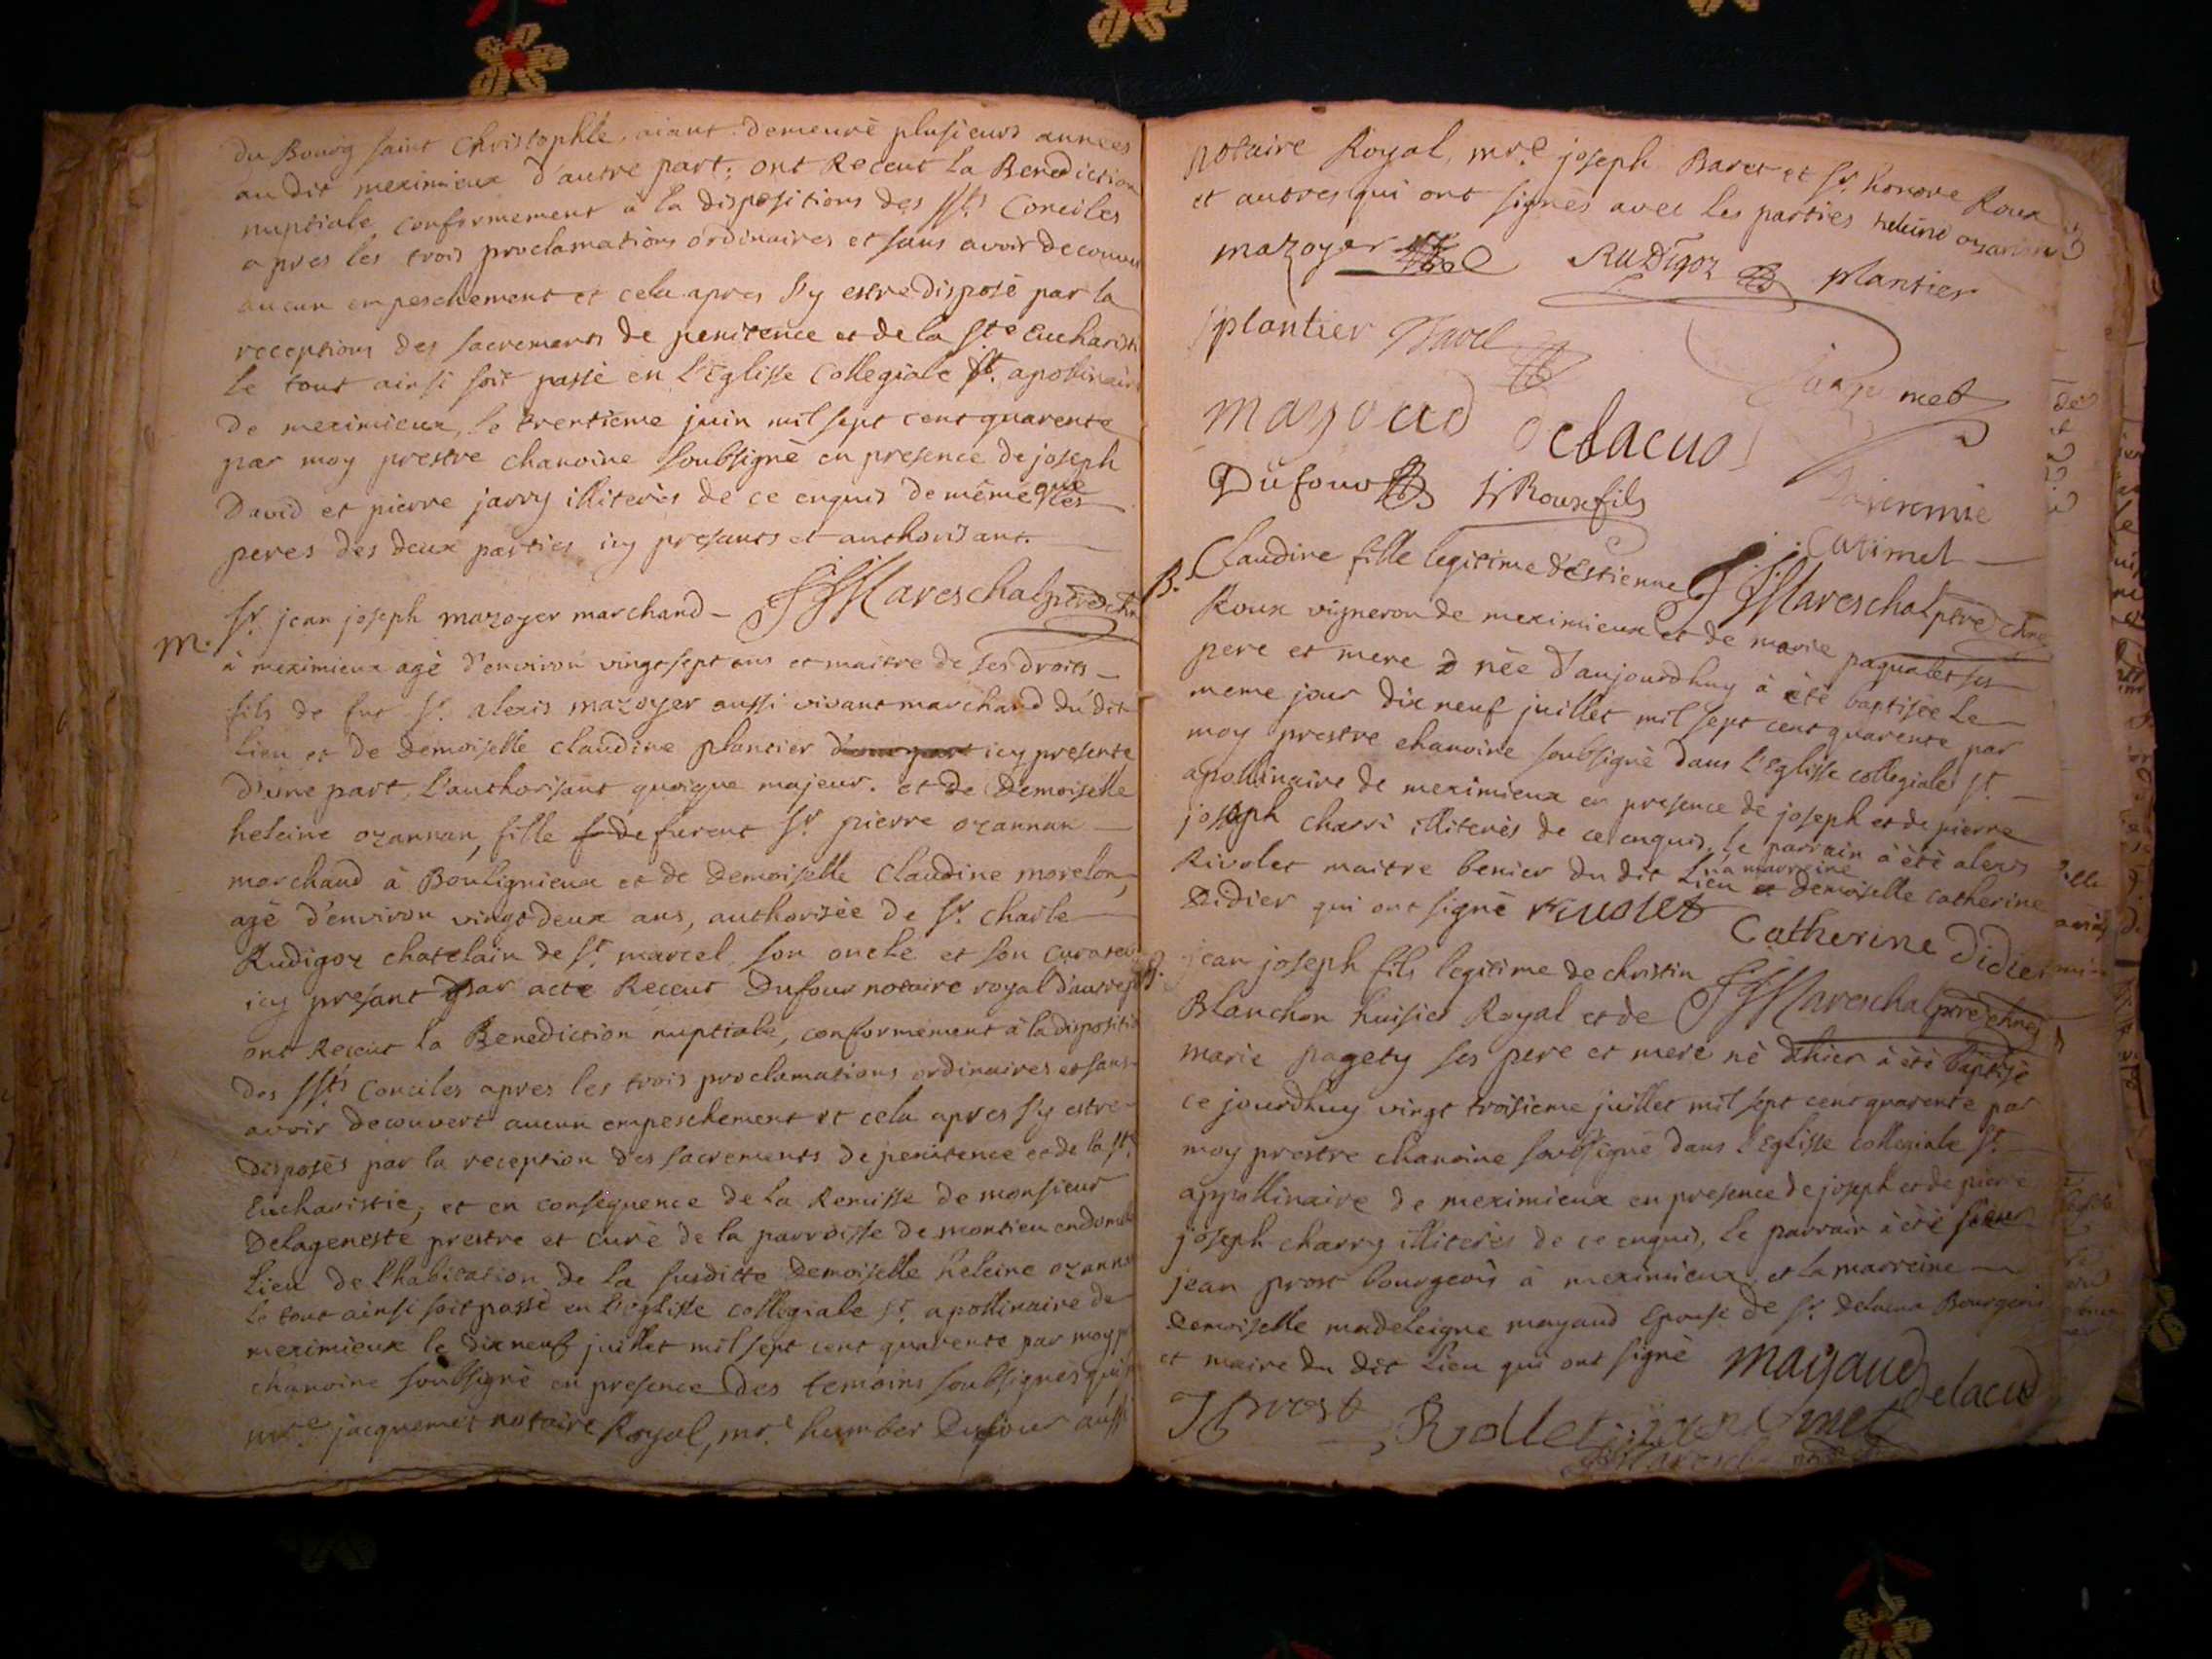 du Bourg saint Christophle, aiant demeuré plusieurs années
au dit meximieux d'autre part, ont Receut la Benediction
nuptiale conformement à la dispositions des SSts Conciles
apres les trois proclamations ordinaires et sans avoir decouvert
aucun empeschement et cela apres s'y estre disposé par la
receptions des sacrements de penitence et de la Ste Eucharisti
le tout ainsi soit passé en l'Eglisse Collegiale St. apollinaire
de meximieux, le trentieme juin mil sept cent quarente
par moy prestre chanoine soubsigné en presence de joseph
David et pierre jarry illiterés de ce enquis de même que les
peres des deux parties icy presants et authorisant.
JJ Mareschal ptre chne
M. Sr. jean joseph mazoyer marchand
à meximieux agé d'environ vingt sept ans et maitre de ses droits
fils de fut Sr. alexis mazoyer aussi vivant marchand du dit
lieu et de Demoiselle claudine plantier d'une part icy presente
d'une part, l'authorisant quoique majeur. et de Demoiselle
heleine ozannan, fille de furent Sr. pierre ozannan
marchand à Boulignieux et de demoiselle Claudine morelon,
agé d'environ vingt deux ans, authorisée de Sr. charle
Rudigoz chatelain de St. marcel, son oncle et son curateur
icy presant par acte Receut Dufour notaire royal d'autre part
ont Receut la Benediction nuptiale, conformement à la dispositio
des SSts Conciles apres les trois proclamations ordinaires et sans
avoir decouvert aucun empeschement et cela apres s'y estre
disposés par la reception des sacrements de penitence et de la Ste
Eucharistie, et en consequence de la Remisse de monsieur
Delageneste prestre et curé de la parroisse de montieu en
lieu de l'habitation de la susditte Demoiselle heleine ozannan
le tout ainsi soit passé en l'eglisse collegiale St. apollinaire de
meximieux le dix neuf juillet mil sept cent quarente par moy
chanoine soubsigné en presence des temoins soubsignés
mre. jacquemet notaire Royal, mre. humber Dufour aussi
notaire Royal, mre. joseph Baret et Sr. honore Roux
et autres qui ont signés avec les parties heleine ozannan
mazoyer Rudigoz plantier
plantier
mayoud delacua
Dufour Roux fils
JJ Mareschal ptre chne
B. Claudine fille legitime d'Estienne
Roux vigneron de meximieux et de marie paqualet ses
pere et mere née d'aujourdhuy à été baptisée le
meme jour dix neuf juillet mil sept cent quarente par
moy prestre chanoine soubsigné dans l'Eglisse collegiale St.
apollinaire de meximieux en presence de joseph et de pierre
joseph charri illiterés de ce enquis, le parrain à été alexis
Rivolet maitre benier du dit Lieu la marreine demoiselle catherine
Didier qui ont signé Riuolet
Catherine Didier
JJ Mareschal ptre chne
B. jean joseph fils legitime de christin
Blanchon huisier Royal et de
marie pagety ses pere et mere né d'hier à été baptisé
ce jourdhuy vingt troisieme juillet mil sept cent quarente par
moy prestre chanoine soubsigné dans l'Eglisse collegiale St.
appollinaire de meximieux en presence de joseph et de pierre
joseph charry illiterés de ce enquis, le parrain à été sieur
jean prost bourgeois à meximieux, et la marreine
Demoiselle madeleigne mayaud Epouse de Sr. delacua Bourgeois
et maire du dit Lieu qui ont signé mayaud
delacua
Prost Rollet